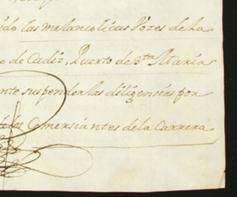 las melancolicas Vozes de la
de Cadiz, Puerto de Sta. Maria
suspender las diligencias por
Comersiantes de la Carrera